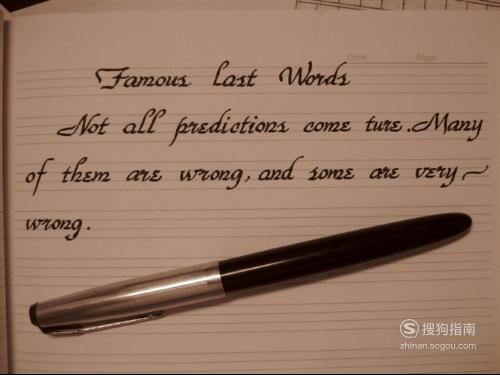 Date Page.
Famous last Words
Not all predictions come ture. Many
of them are wrong, and some are very
wrong.
搜狗指南
zhinan.sogou.com